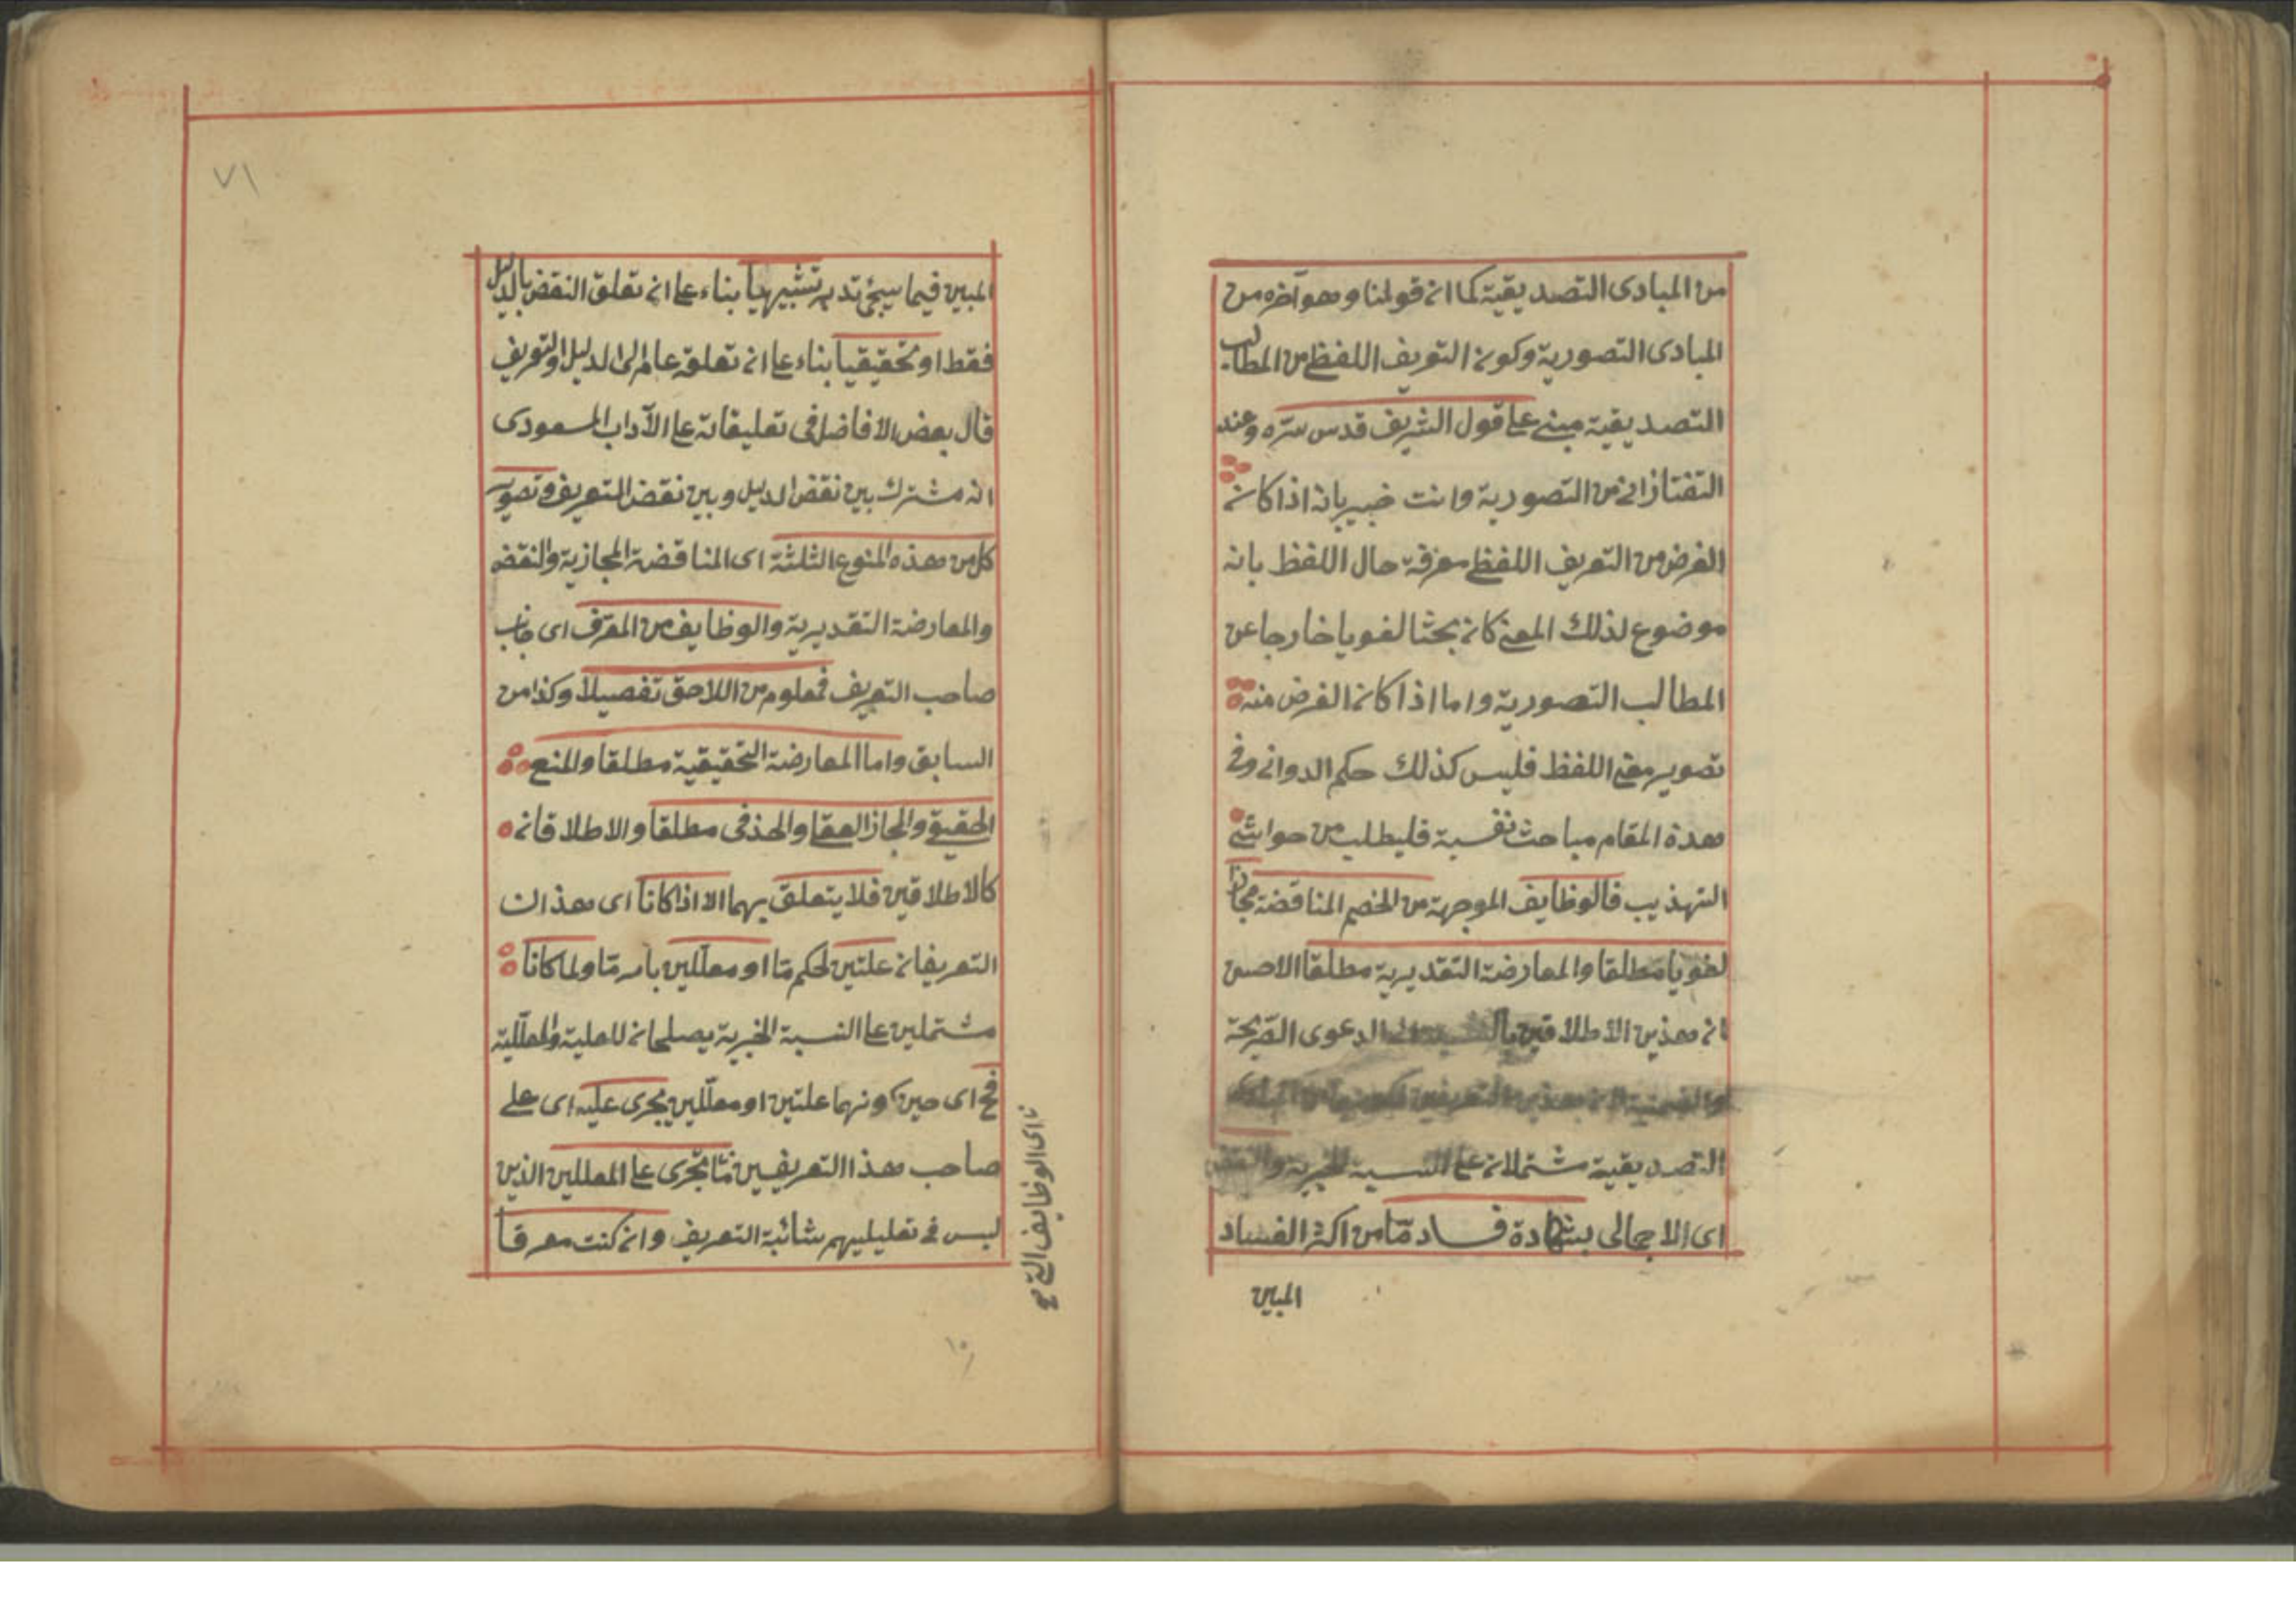 من المبادى التصديقية كما ان قولنا وهو آخره من
المبادى التصورية وكون التعريف اللفظى من المطالب
التصديقية مبنى على قول الشريف قدس سره وعند
التفتازانى من التصورية وانت خبير بانه اذا كان
الغرض من التعريف اللفظى معرفة حال اللفظ بانه
موضوع لذلك المعنى كان بحثا لغويا خارجا عن
المطالب التصورية واما اذا كان الغرض منه
تصوير معنى اللفظ فليس كذلك حكم الدوانى وفى
هذه المقام مباحث نفسية فليطلب من حواشى
التهذيب فالوظايف الموجهة من الخصم المناقضة مجازا
لغويا مطلقا والمعارضة التقديرية مطلقا الاحسن
ان هذين الاطلاقين الدعوى الصريحة
التصديقية مشتملان على النسبة الخبرية والنقض
اى الاجمالى بشهادة فساد ما من اكثر الفساد
المبين
المبين فيما سيجئ تدبر تشبيهيا بناء على ان تعلق النقض بالدليل
فقط او تحقيقيا بناء على ان تعلقه عام الى الدليل والتعريف
قال بعض الافاضل فى تعليقاته على الآداب المسعودى
انه مشترك بين نقض الدليل وبين نقض التعريف وتصوير
كل من هذه المنوع الثلثة اى المناقضة المجازية والنقض
والمعارضة التقديرية والوظايف من المعرف اى جانب
صاحب التعريف فمعلوم من اللاحق تفصيلا وكذا من
السابق واما المعارضة التحقيقية مطلقا والمنع
الحقيقى والمجاز العقلى والحذفى مطلقا والاطلاقان
كالاطلاقين فلا يتعلق بهما الا اذا كانا اى هذان
التعريفان علتين لحكم ما او معللين بامر ما ولما كانا
مشتملين على النسبة الخبرية يصلحان للعلية والمعللية
فح اى حين كونهما علتين او معللين يجرى عليه اى على
صاحب هذا التعريفين ما تجرى على المعللين الذين
ليس فى تعليليهم شائبة التعريف وان كنت معرفا
اى الوظايف التى
٧١